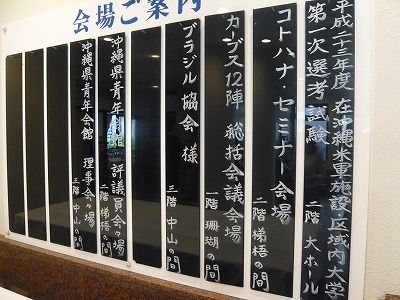 会場ご案内
平成二十三年度 在沖縄米軍施設・区域内大学
第一次選考試験 二階 大ホール
コトハナ・セミナー会場 二階 梯梧の間
カーブス12陣 総括会議会場 一階 珊瑚の間
ブラジル協会 様 三階 中山の間
沖縄県青年会館 評議員会々場 二階 梯梧の間
沖縄県青年会館 理事会々場 三階 中山の間